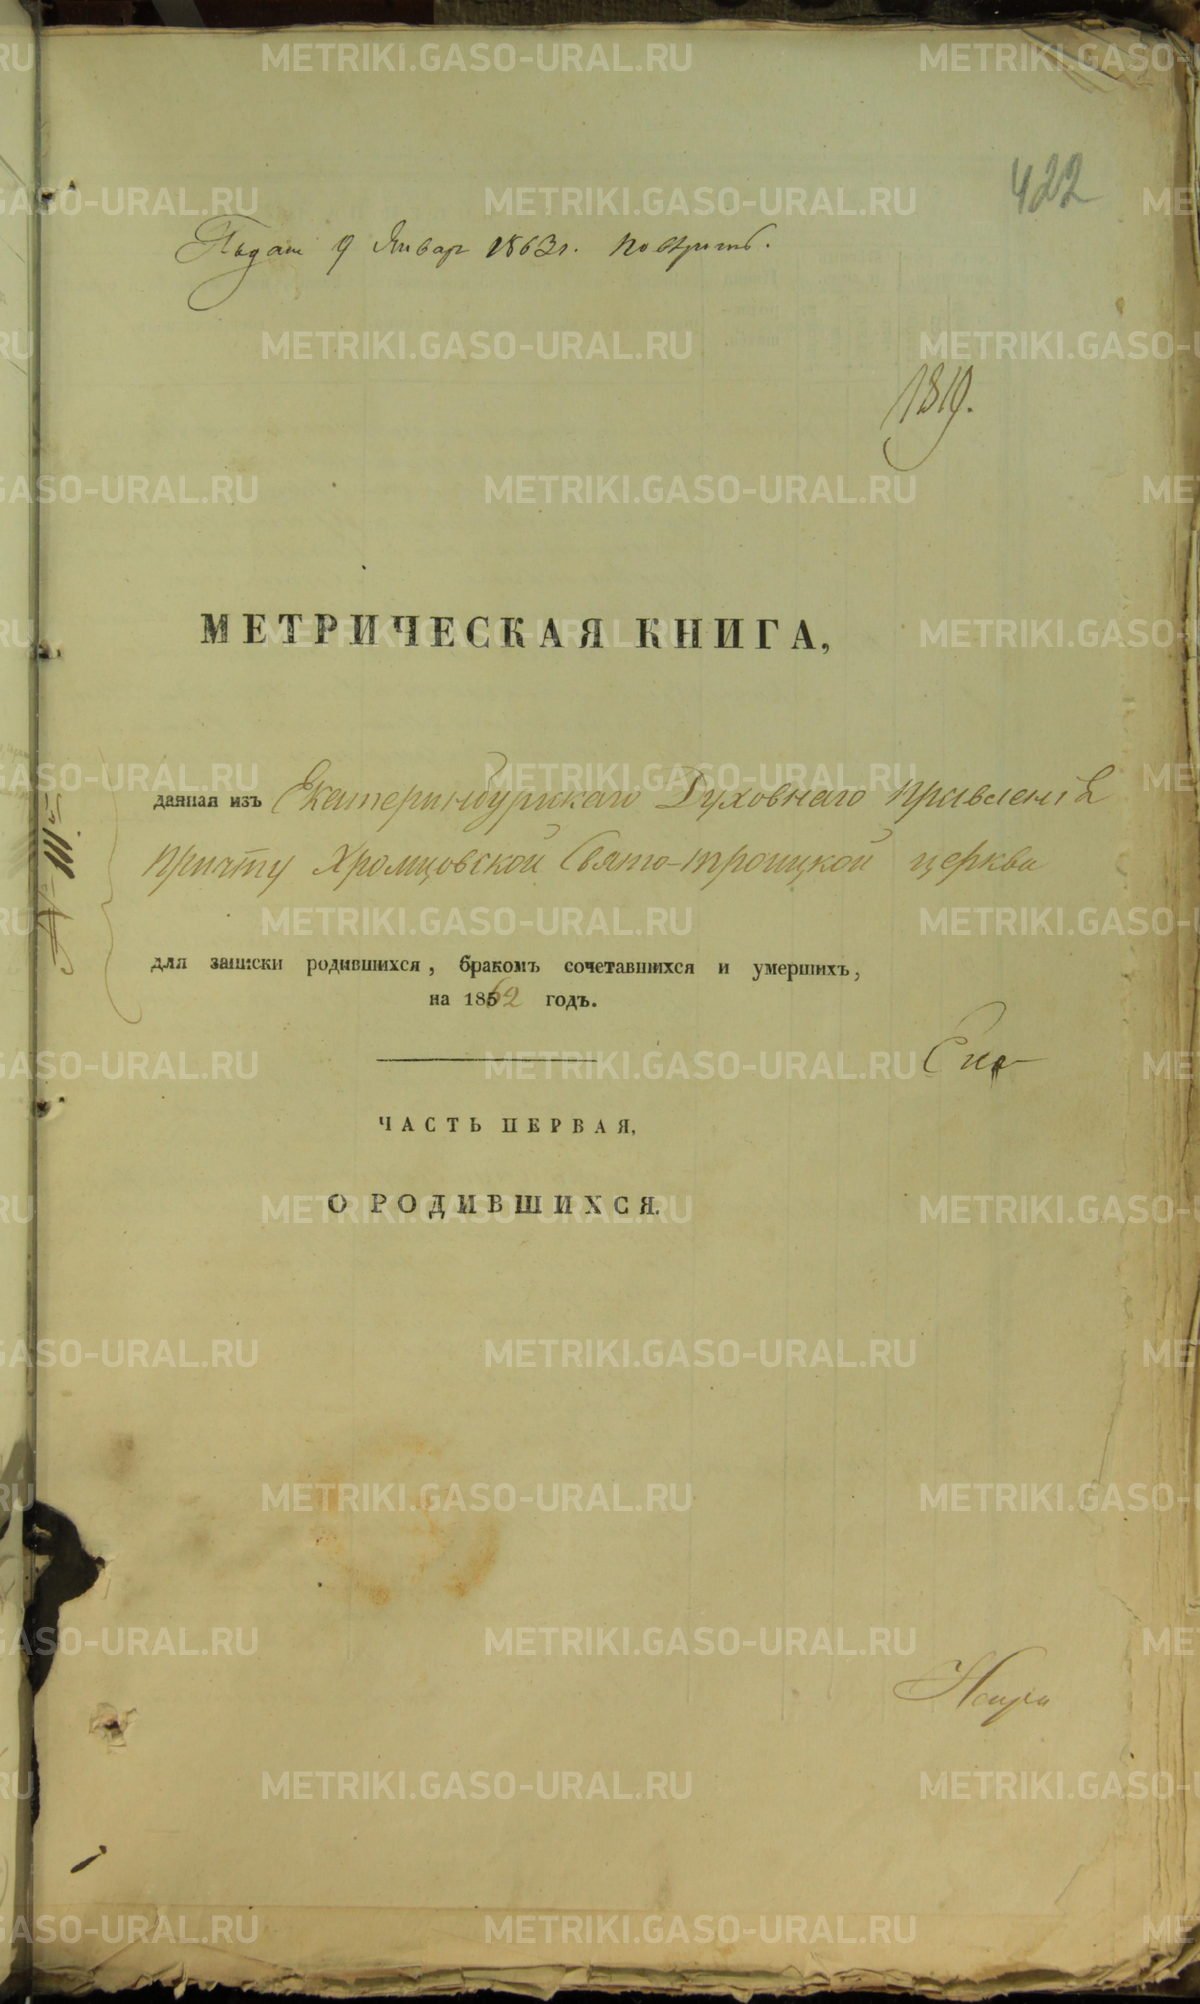 422
Подан 9 Январ 1863 г.
1819.
МЕТРИЧЕСКАЯ КНИГА,
данная изъ Екатеринбургскаго Духовнаго Правленія
Причту Хромцовской Свято-троицкой церкви
для записки родившихся, бракомъ сочетавшихся и умершихъ,
на 1862 годъ.
ЧАСТЬ ПЕРВАЯ,
О РОДИВШИХСЯ.
METRIKI.GASO-URAL.RU